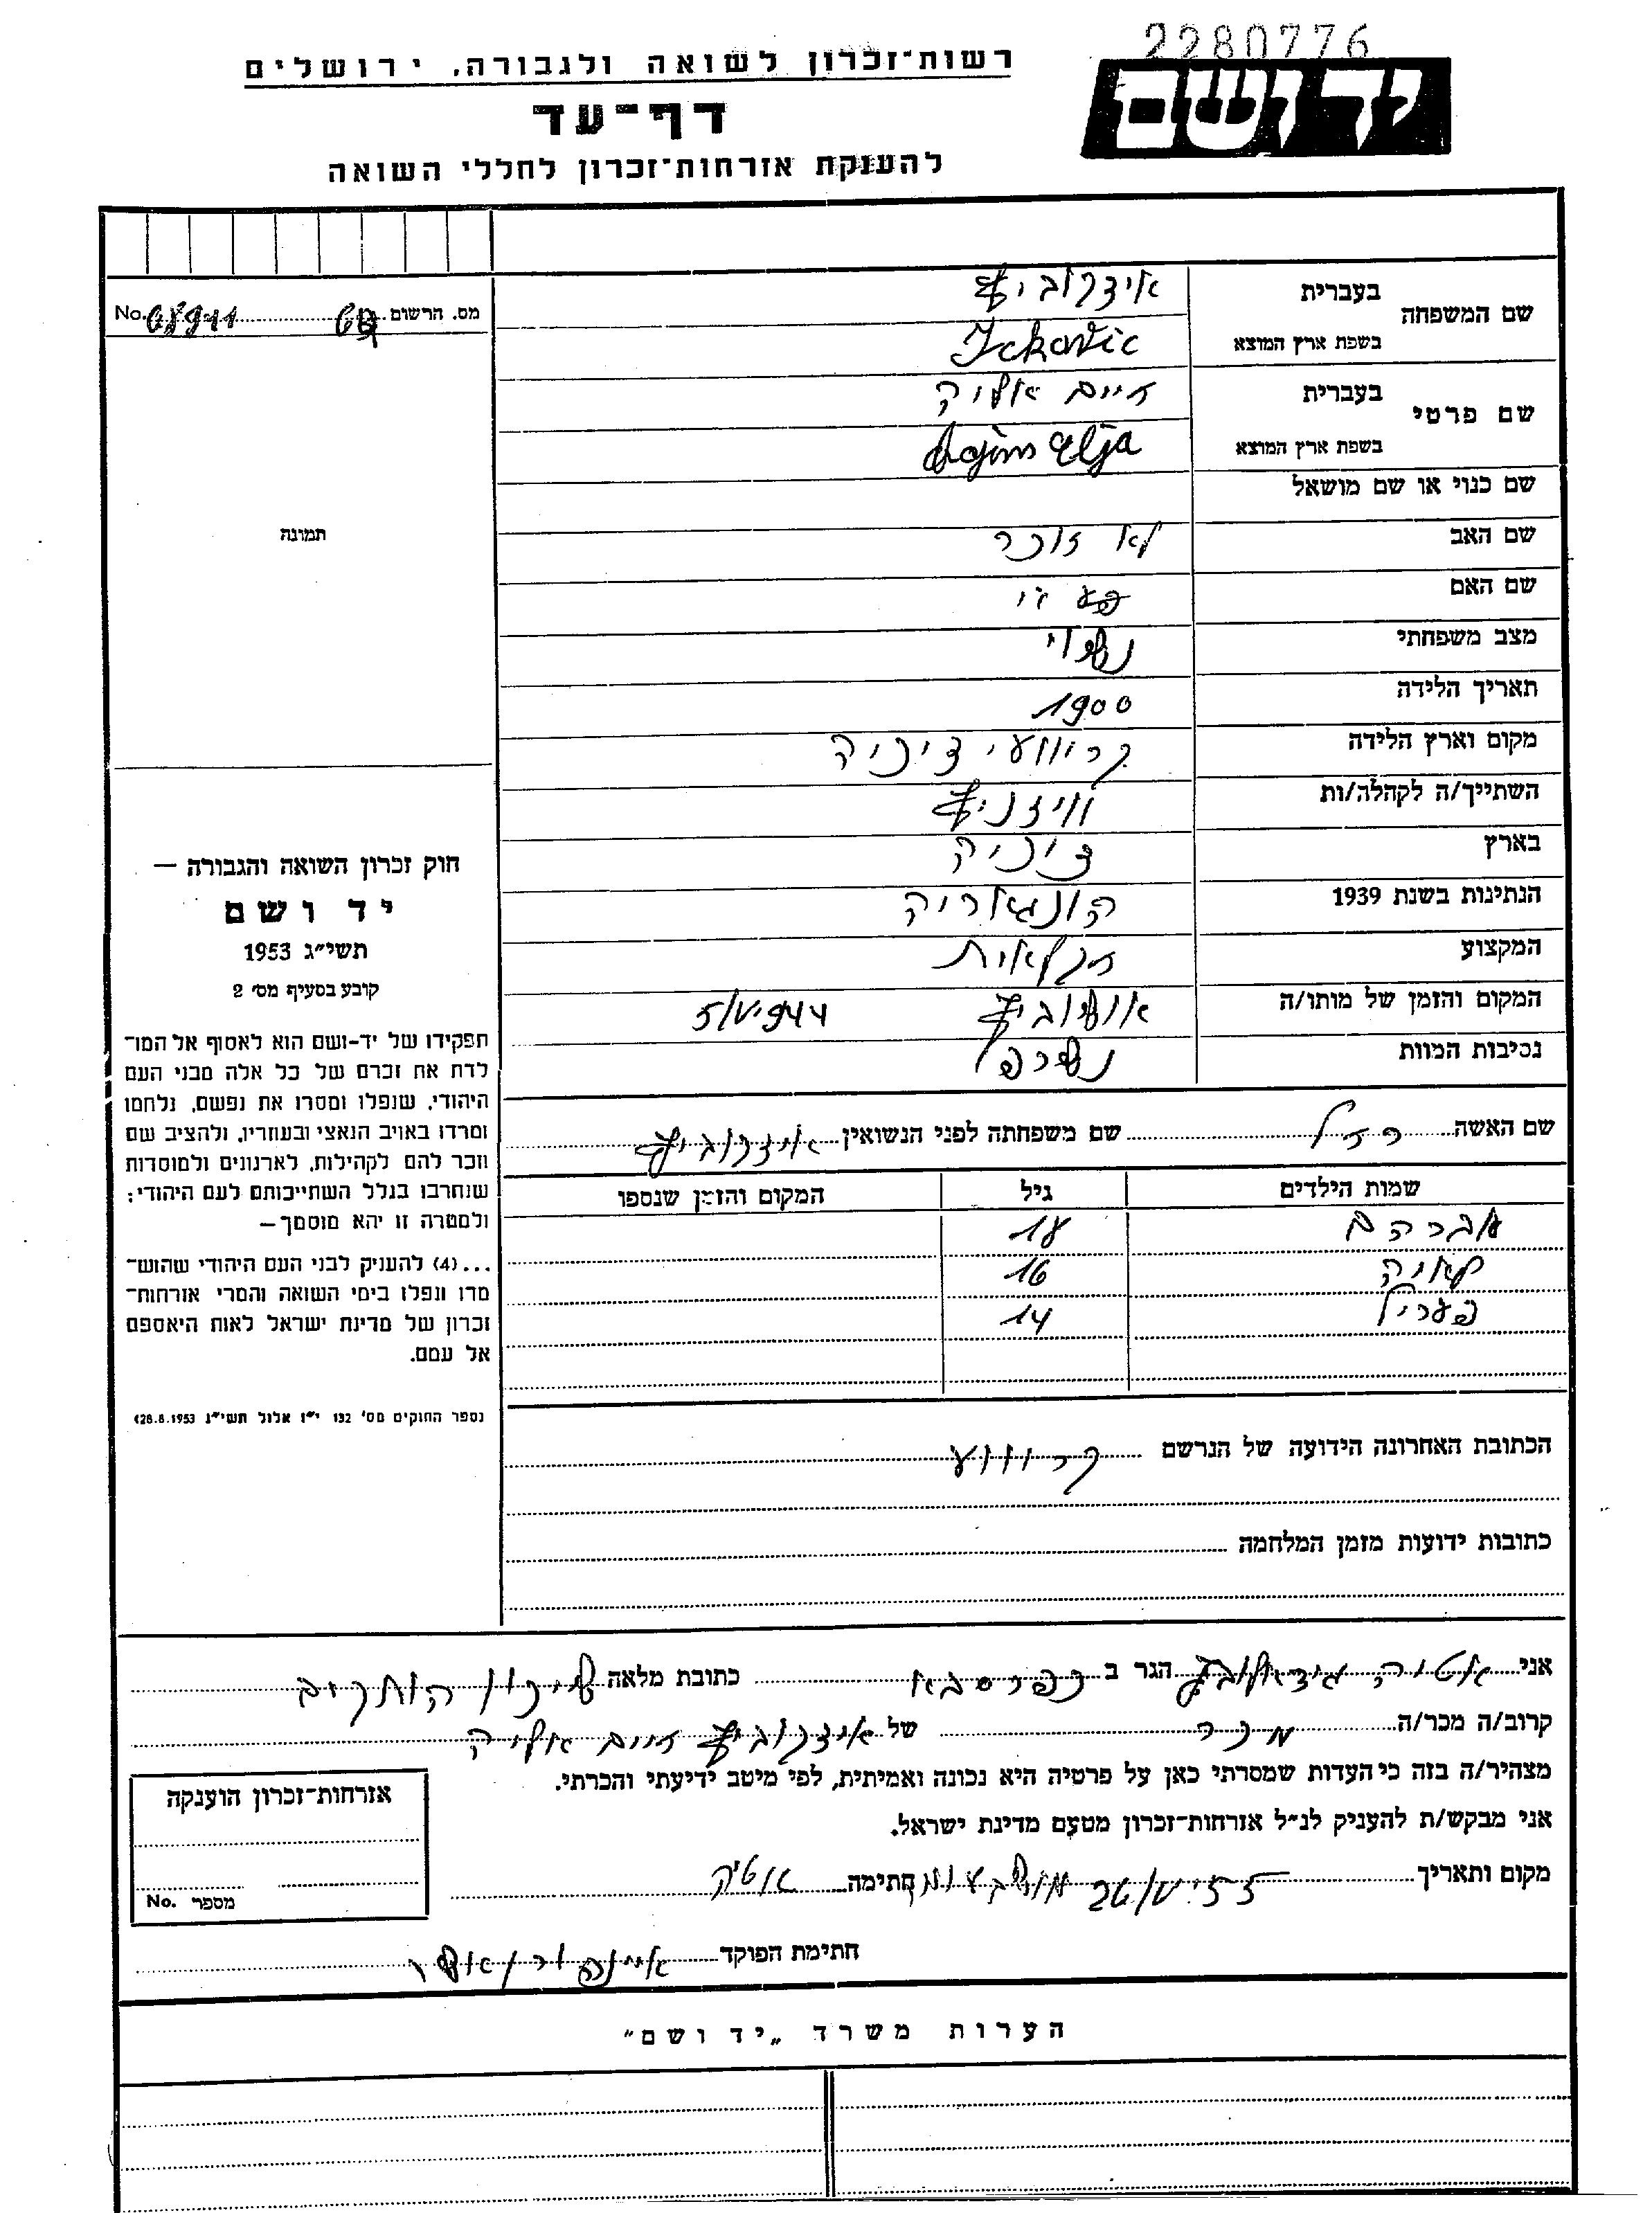 2280776
יד ושם
רשות־זכרון לשואה ולגבורה, ירושלים
דף־עד
להענקת אזרחות־זכרון לחללי השואה
מס. הרשום No.
שם המשפחה
בעברית איצקוביץ
בשפת ארץ המוצא Ickovic
שם פרטי
בעברית חיים אליה
בשפת ארץ המוצא Hajim Elja
שם כנוי או שם מושאל
שם האב לא זוכר
שם האם
מצב משפחתי נשוי
תאריך הלידה 1900
מקום וארץ הלידה
השתייך/ה לקהלה/ות וויזניץ
בארץ
הנתינות בשנת 1939 הונגאריה
המקצוע חקלאות
המקום והזמן של מותו/ה אושוביץ 5/V.944
נסיבות המוות נשרף
תמונה
חוק זכרון השואה והגבורה —
יד ושם
תשי״ג 1953
קובע בסעיף מס׳ 2
תפקידו של יד-ושם הוא לאסוף אל המו־
לדת את זכרם של כל אלה מבני העם
היהודי, שנפלו ומסרו את נפשם, נלחמו
ומרדו באויב הנאצי ובעוזריו, ולהציב שם
וזכר להם לקהילות, לארגונים ולמוסדות
שנחרבו בגלל השתייכותם לעם היהודי;
ולמטרה זו יהא מוסמך —
...(4) להעניק לבני העם היהודי שהוש־
מדו ונפלו בימי השואה והמרי אזרחות־
זכרון של מדינת ישראל לאות היאספם
אל עמם.
(ספר החוקים מס׳ 132 י״ז אלול תשי״ג 28.8.1953)
שם האשה רחל שם משפחתה לפני הנשואין איצקוביץ
שמות הילדים גיל המקום והזמן שנספו
אברהם 18
16
פעריל 14
הכתובת האחרונה הידועה של הנרשם קרווע
כתובות ידועות מזמן המלחמה
אני אטיה הגר ב כפר סבא כתובת מלאה שיכון הותקים
קרוב/ה מכר/ה מכר של איצקוביץ חיים אליה
מצהיר/ה בזה כי העדות שמסרתי כאן על פרטיה היא נכונה ואמיתית, לפי מיטב ידיעתי והכרתי.
אני מבקש/ת להעניק לנ״ל אזרחות־זכרון מטעם מדינת ישראל.
מקום ותאריך חתימה אטיה
אזרחות־זכרון הוענקה
מספר No.
חתימת הפוקד
הערות משרד „יד ושם״